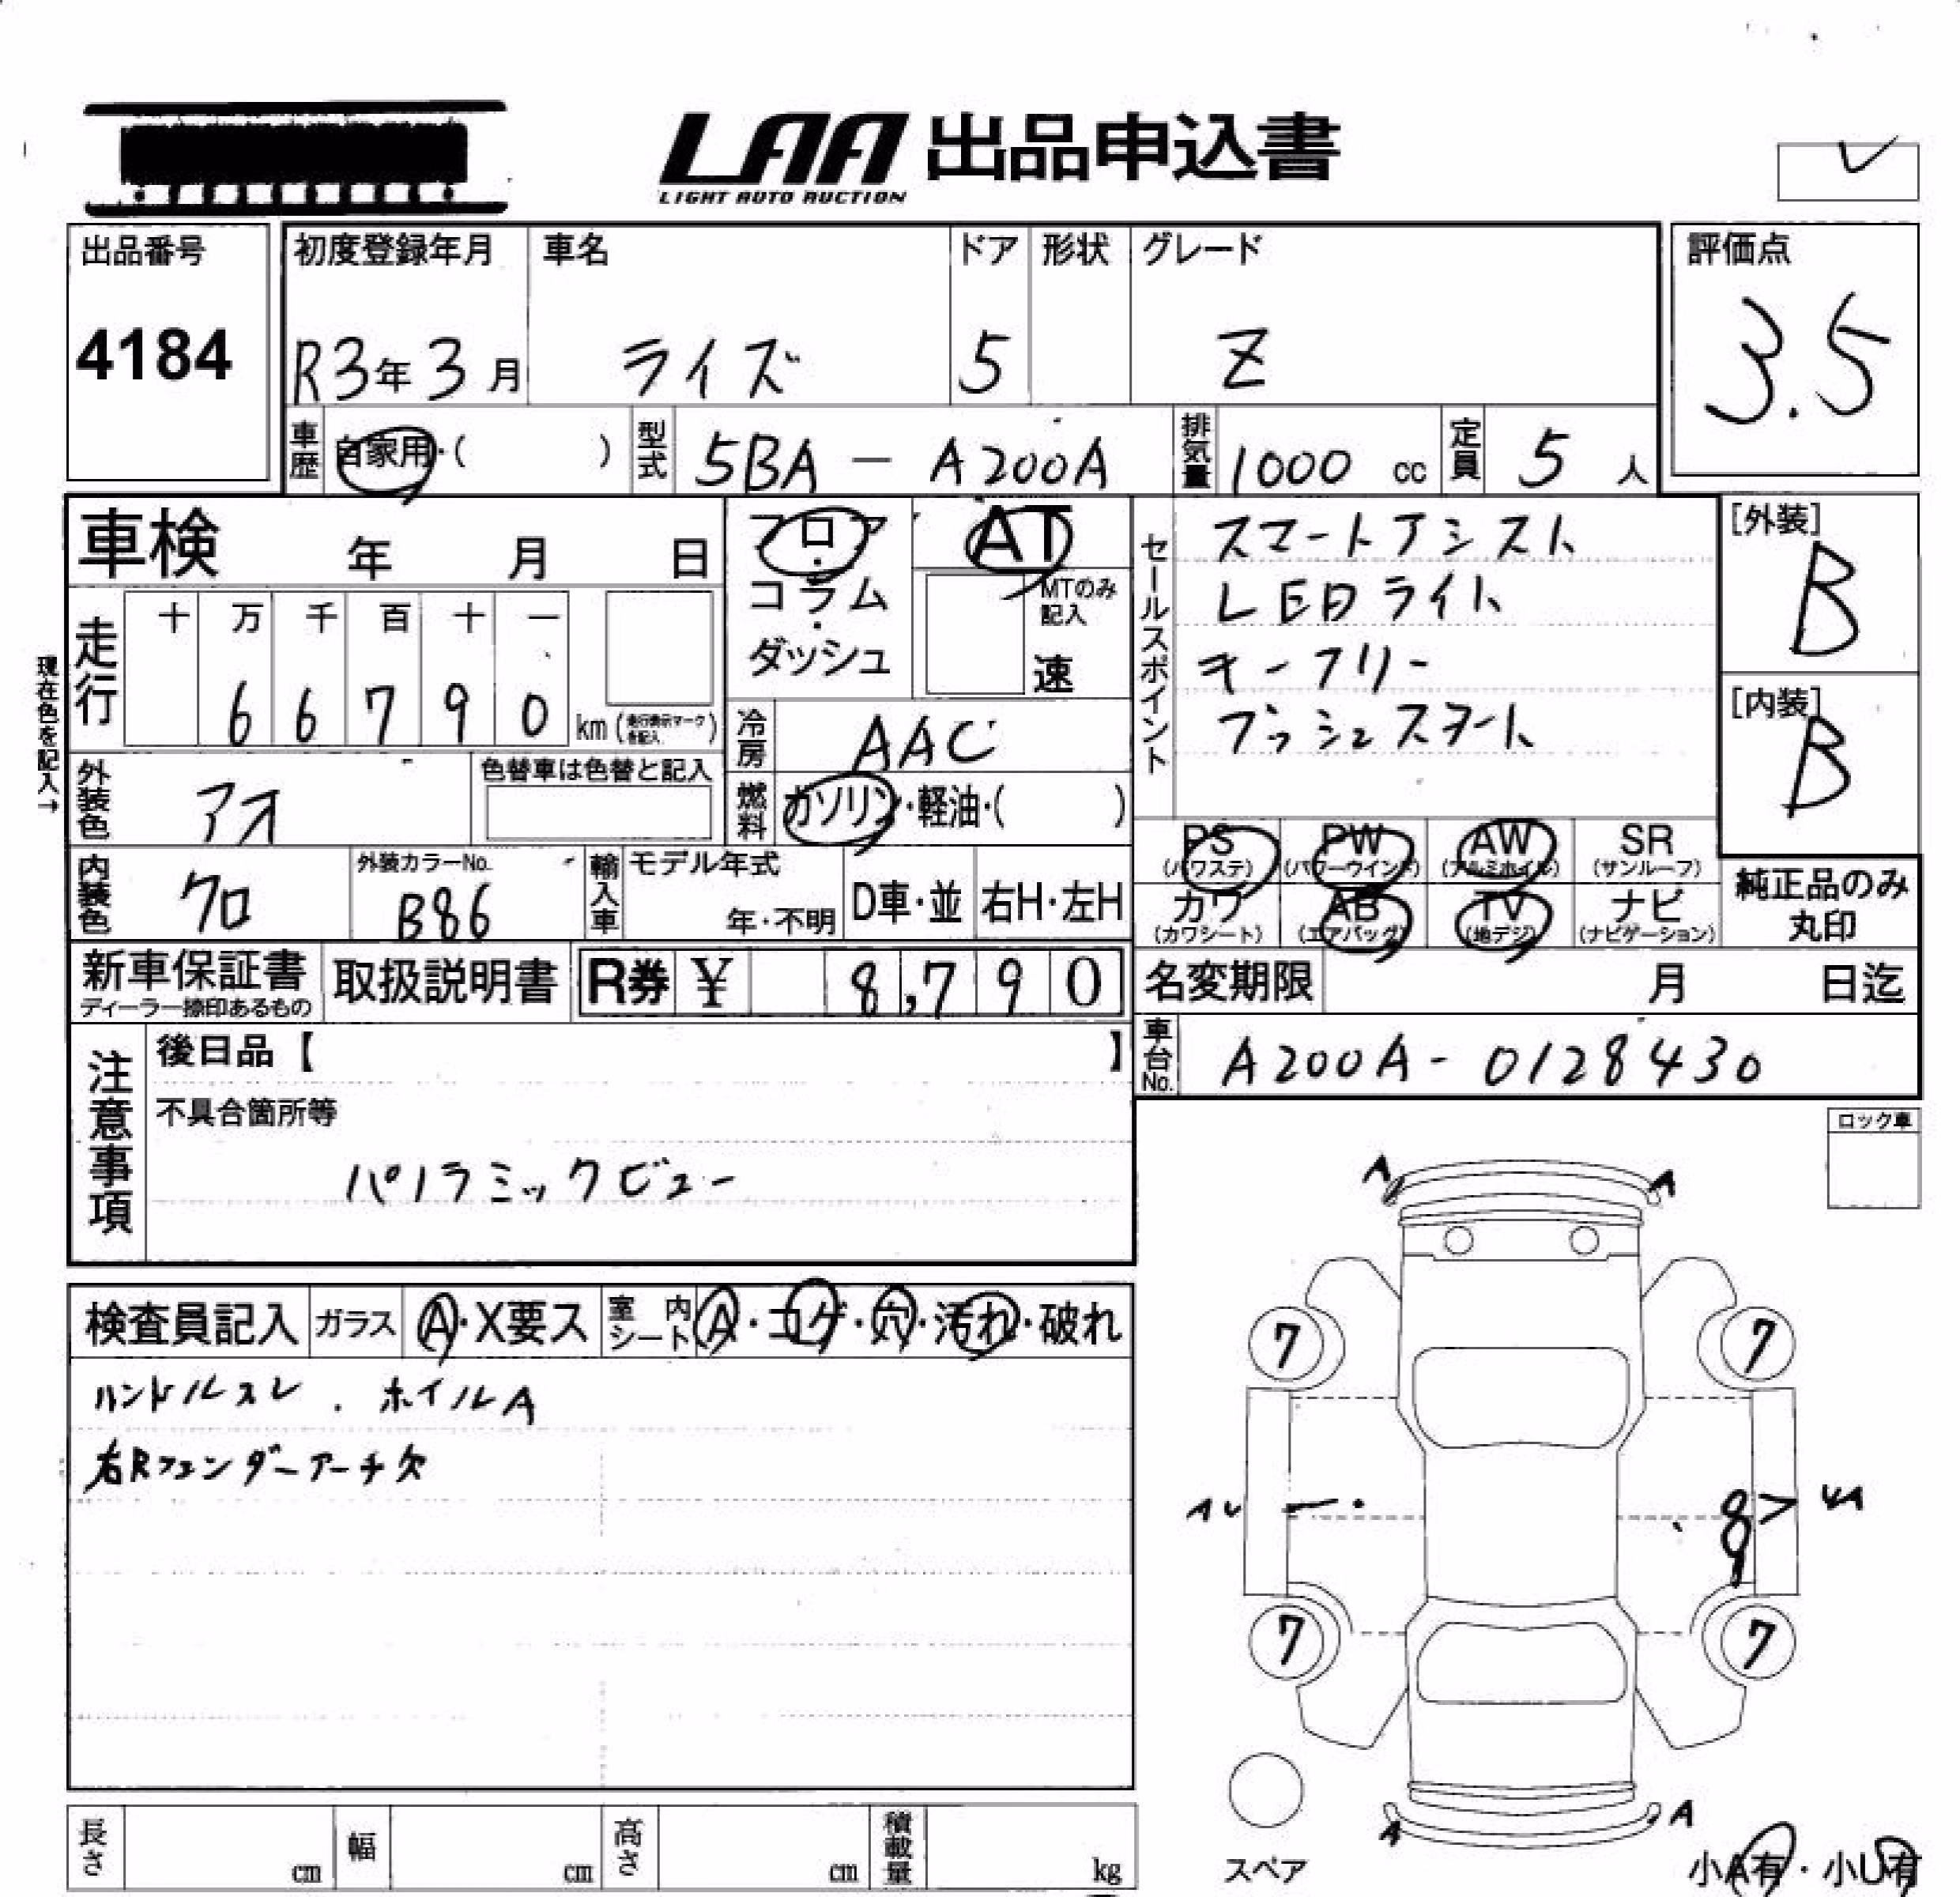 LAA 出品申込書
LIGHT AUTO AUCTION
出品番号
4184
初度登録年月
R3年3月
車名
ライズ
ドア
5
形状
グレード
Z
評価点
3.5
車歴 自家用・( )
型式 5BA - A200A
排気量 1000 cc
定員 5 人
車検 年 月 日
フロア・コラム・ダッシュ
AT
MTのみ記入
速
セールスポイント
スマートアシスト
LEDライト
キーフリー
プッシュスタート
[外装]
B
[内装]
B
現在色を記入→
走行
十 万 千 百 十 一
6 6 7 9 0 km (走行表示マークを記入)
冷房 AAC
外装色 アオ
色替車は色替と記入
燃料 ガソリン・軽油・( )
PS (パワステ)
PW (パワーウインド)
AW (アルミホイル)
SR (サンルーフ)
内装色 クロ
外装カラーNo. B86
輸入車 モデル年式 年・不明
D車・並
右H・左H
カワ (カワシート)
AB (エアバッグ)
TV (地デジ)
ナビ (ナビゲーション)
純正品のみ丸印
新車保証書
ディーラー捺印あるもの
取扱説明書
R券 ¥ 8,790
名変期限 月 日迄
車台No. A200A - 0128430
注意事項
後日品【 】
不具合箇所等
パノラミックビュー
ロック車
検査員記入
ガラス A・X要ス
室内シート A・コゲ・穴・汚れ・破れ
ハンドルスレ . ホイルA
右Rフェンダーアーチ欠
A A
7 7
AU UA
7 7
A A
スペア
小A有・小U有
長さ cm
幅 cm
高さ cm
積載量 kg